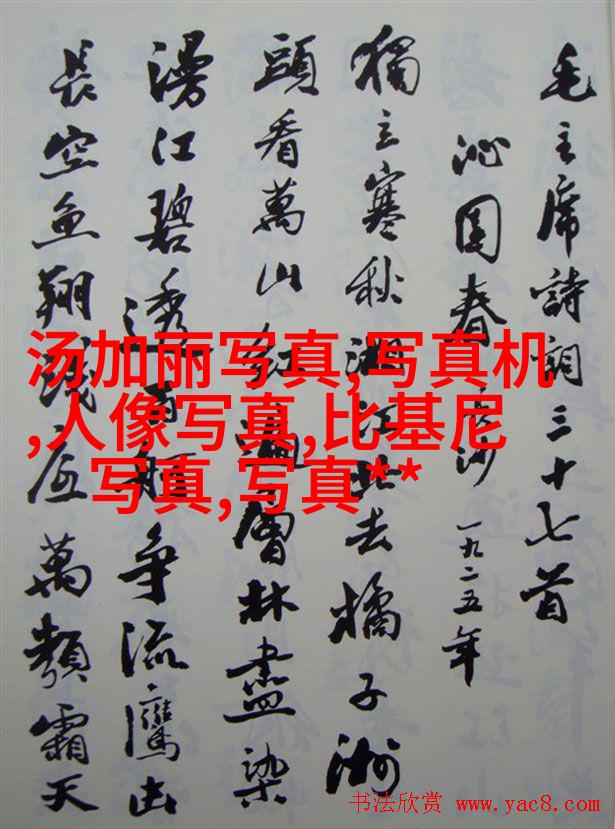 毛主席詩詞三十七首
沁園春 長沙 一九二五年
獨立寒秋湘江北去橘子洲
頭看萬山紅遍層林盡染
漫江碧透百舸争流鷹击
長空魚翔浅底萬類霜天
汤加丽写真,写真机
,人像写真,比基尼
写真,写真**
书法欣赏 www.yac8.com